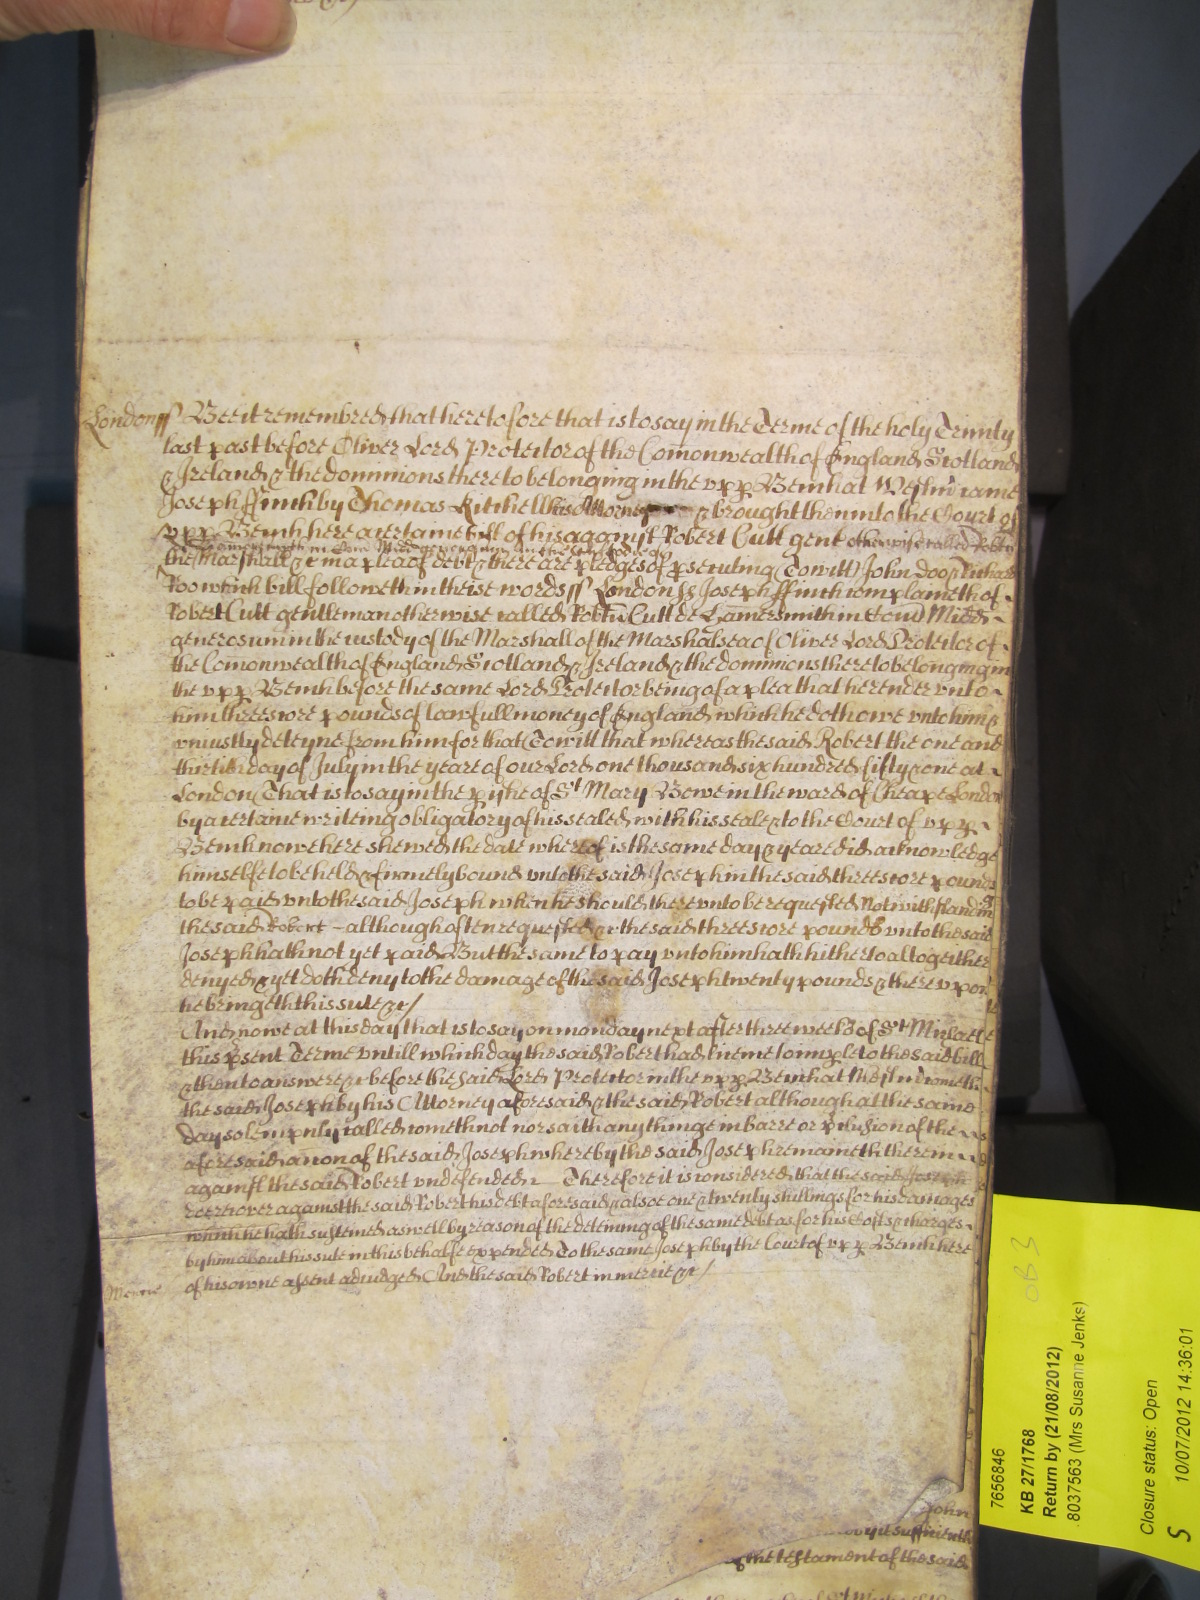 London ss Bee it remembred that heretofore that is to say in the Terme of the holy Trinity
last past before Oliver Lord Protector of the Comonwealth of England Scotland
& Ireland & the dominions thereto belonging in the vpp Bench at Westmr came
Joseph ffinch by Thomas Kitchell his Attorney & brought then into the Court of
vpp Bench here a certaine bill of his against Robert Cutt gent otherwise called Robtu
the Marshall &c in a plea of debt & there are pledges of psecuting (To witt) John Doo & Richard
Roo which bill followeth in theise words ss London ss Joseph ffinch complaineth of
Robert Cutt gentleman otherwise called Robtu Cutt de Hamersmith in Com Midd
generosum in the custody of the Marshall of the Marshalsea of Oliver Lord Protector of
the Comonwealth of England Scotland & Ireland & the dominions thereto belonging in
the vpp Bench before the same Lord Protector being of a plea that he render vnto
him threescore pounds of lawfull money of England which he doth owe vnto him &
vniustly deteyne from him for that (To witt) that whereas the said Robert the one and
thirtith day of July in the yeare of our Lord one thousand six hundred fifty & one at
London (That is to say) in the pishe of St Mary Bowe in the ward of Cheape London
by a certaine writeing obligatory of his sealed with his seale & to the Court of vpp
Bench now here shewed the date whereof is the same day & yeare did acknowledge
himselfe to be held & firmely bound vnto the said Joseph in the said threescore pounds
to be paid vnto the said Joseph when he should therevnto be requested Notwithstanding
the said Robert although often requested &c the said threescore pounds vnto the said
Joseph hath not yet paid But the same to pay vnto him hath hitherto altogeither
denyed & yet doth deny to the damage of the said Joseph twenty pounds & therevpon
he bringeth this sute &c/
And nowe at this day that is to say on monday next after three weeks of St Michael
this psent Terme vntill which day the said Robert had licence to imple to the said bill
& then to answere &c before the said Lord Protector in the vpp Bench at Westmr cometh
the said Joseph by his Attorney aforesaid & the said Robert although at the same
day solempnly called cometh not nor saith any thinge in barre or pclusion of the
aforesaid accon of the said Joseph whereby the said Joseph remaineth therein
against the said Robert vndefended Therefore it is considered that the said Joseph
recever against the said Robert his debt aforesaid & alsoe one & twenty shillings for his damages
which he hath susteined aswell by reason of the deteining of the same debt as for his Costs & charges
by him about his sute in this behalfe expended To the same Joseph by the Court of vpp Bench here
of his owne assent adiudged And the said Robert in mercie &c/
Mercie
John
sufficient
of the testament of the said
7656846
KB 27/1768
Return by (21/08/2012)
8037563 (Mrs Susanne Jenks)
Closure status: Open
10/07/2012 14:36:01
OB 3
S